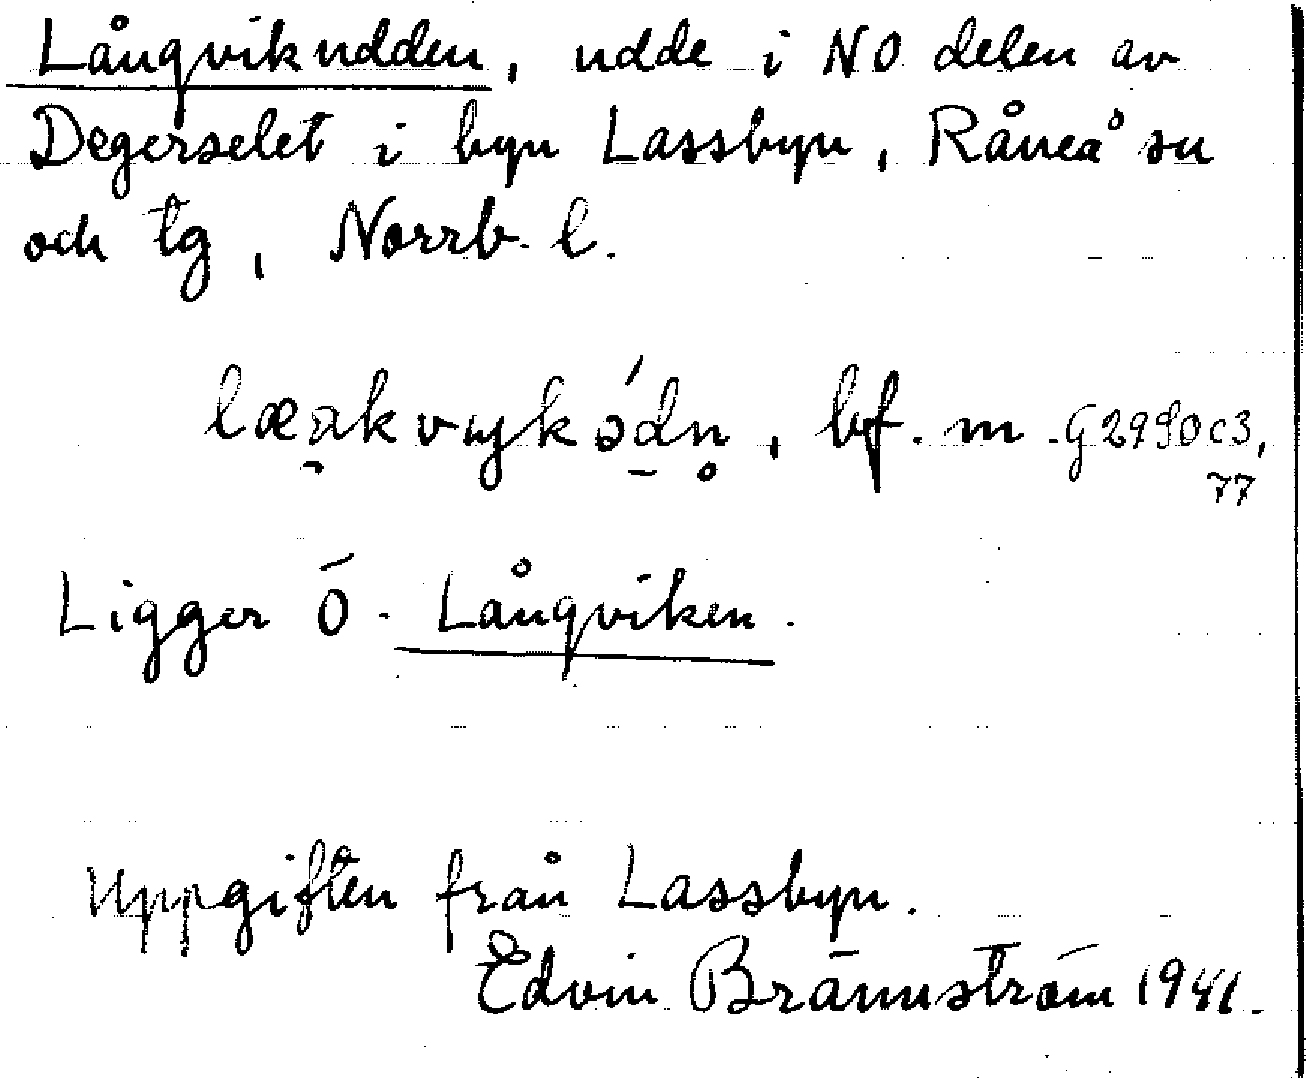 Långvikudden, udde i NO delen av
Degerselet i byn Lassbyn, Råneå sn
och tg, Norrb. l.
bf. m.
77
Ligger Ö. Långviken.
Uppgiften från Lassbyn.
Edvin Brännström 1941.